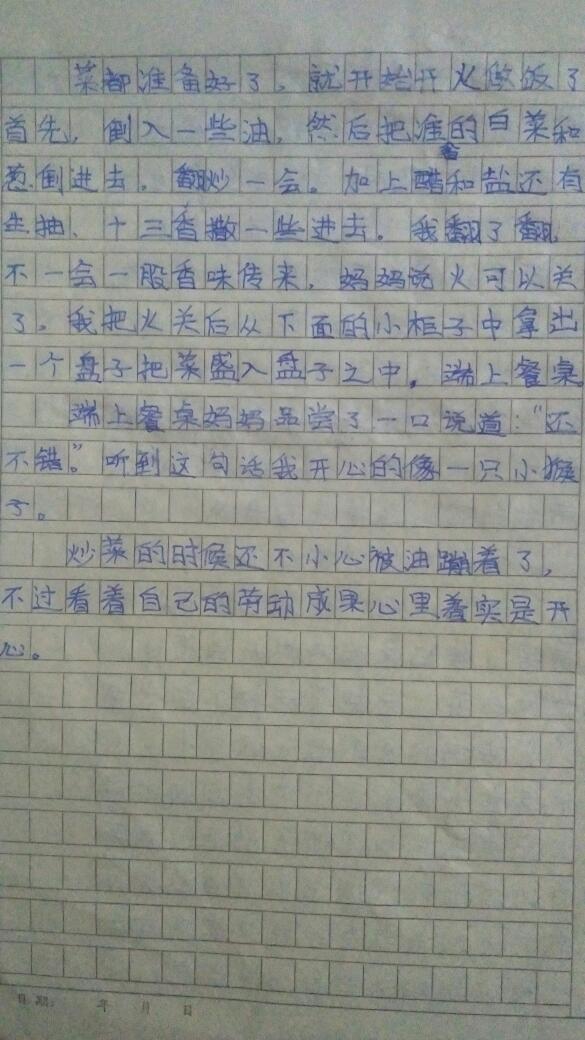 菜都准备好了，就开始开火做饭了
首先，倒入一些油，然后把准备的白菜和
葱倒进去。翻炒一会。加上醋和盐还有
生抽、十三香撒一些进去。我翻了翻，
不一会一股香味传来，妈妈说火可以关
了。我把火关后从下面的小柜子中拿出
一个盘子把菜盛入盘子之中，端上餐桌
端上餐桌妈妈品尝了一口说道：“还
不错。”听到这句话我开心的像一只小猴
子。
炒菜的时候还不小心被油蹦着了，
不过看着自己的劳动成果心里着实是开
心。
日期： 年 月 日